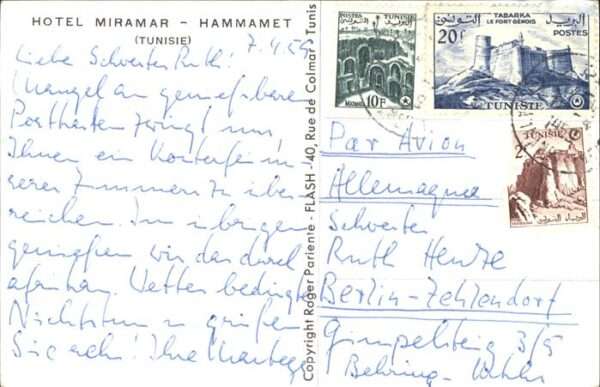 HOTEL MIRAMAR - HAMMAMET
(TUNISIE)
7.4.59
Liebe Schwester Ruth!
Mangel an geniessbaren
Postkarten zwingt uns,
Ihnen ein Konterfei un-
seres Zimmers zu über-
reichen. Im übrigen
genießen wir das durch
afrikan. Wetter bedingte
Nichtstun u. grüßen
Sie sehr! Ihre
Copyright Roger Pariente - FLASH - 40, Rue de Colmar, Tunis
POSTES TUNISIE
10F
TABARKA
LE FORT GENOIS
20F
POSTES
TUNISIE
TUNISIE
Par Avion
Allemagne
Schwester
Ruth Henze
Berlin-Zehlendorf
Gimpelsteig 3/5
Behring-